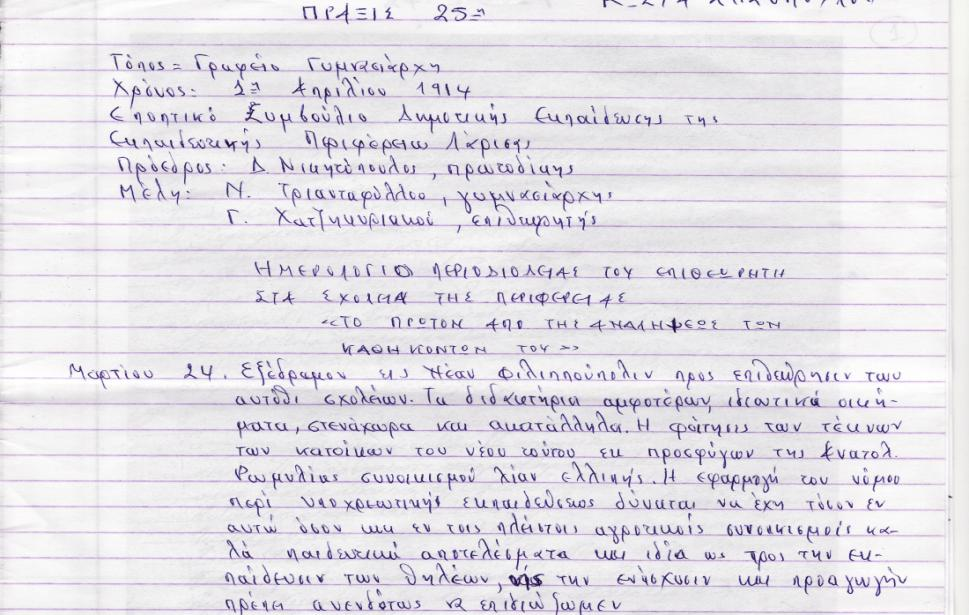 ΠΡΑΞΙΣ 25η
1
Τόπος = Γραφείο Γυμνασιάρχη
Χρόνος: 1η Απριλίου 1914
Εποπτικό Συμβούλιο Δημοτικής Εκπαίδευσης της
Εκπαιδευτικής Περιφέρειας Λάρισης
Πρόεδρος: Δ. Νικητόπουλος, πρωτοδίκης
Μέλη: Ν. Τριανταφύλλου, γυμνασιάρχης
Γ. Χατζηκυριακού, επιθεωρητής
ΗΜΕΡΟΛΟΓΙΟ ΠΕΡΙΟΔΙΟΛΕΙΑΣ ΤΟΥ ΕΠΙΘΕΩΡΗΤΗ
ΣΤΑ ΣΧΟΛΕΙΑ ΤΗΣ ΠΕΡΙΦΕΡΕΙΑΣ
«ΤΟ ΠΡΩΤΟΝ ΑΠΟ ΤΗΣ ΑΝΑΛΗΨΕΩΣ ΤΩΝ
ΚΑΘΗΚΟΝΤΩΝ ΤΟΥ»
Μαρτίου 24. Εξέδραμον εις Νέαν Φιλιππούπολιν προς επιθεώρησιν των
αυτόθι σχολείων. Τα διδακτήρια αμφοτέρων, ιδιωτικά οική-
ματα, στενόχωρα και ακατάλληλα. Η φοίτησις των τέκνων
των κατοίκων του νέου τούτου εκ προσφύγων της Ανατολ.
Ρωμυλίας συνοικισμού λίαν ελλιπής. Η εφαρμογή του νόμου
περί υποχρεωτικής εκπαιδεύσεως δύναται να έχη τόσον εν
αυτώ όσον και εν τοις πλείστοις αγροτικοίς συνοικισμοίς κα-
λά παιδευτικά αποτελέσματα και ιδία ως προς την εκ-
παίδευσιν των θηλέων, ής την ενίσχυσιν και προαγωγήν
πρέπει ανενδότως να επιδιώξωμεν